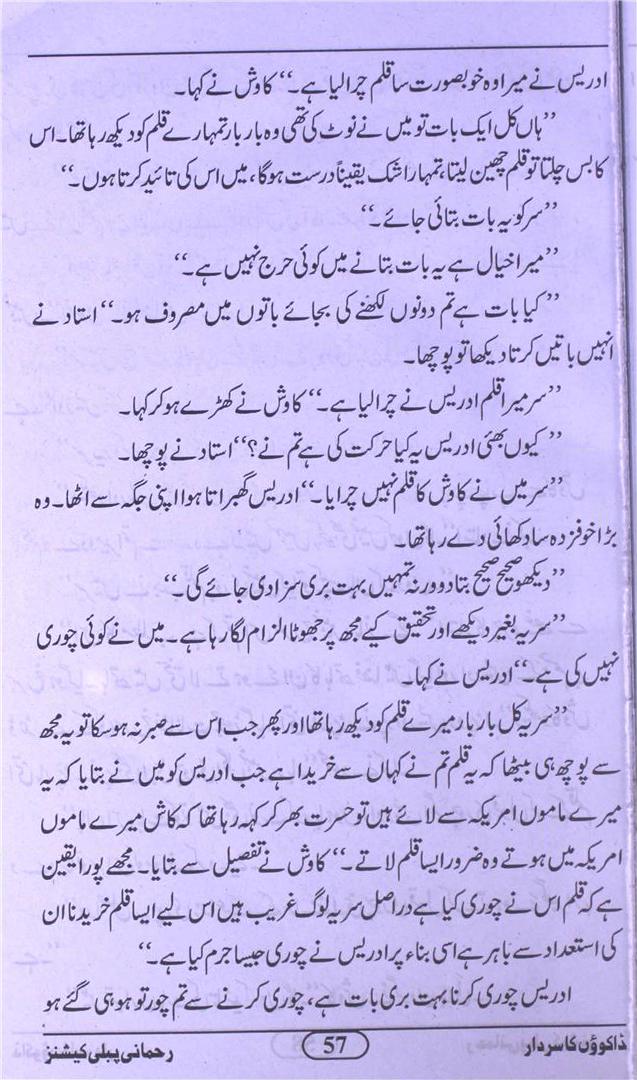 ادریس نے میرا وہ خوبصورت سا قلم چرالیا ہے۔‘‘ کاوش نے کہا۔
’’ہاں کل ایک بات تو میں نے نوٹ کی تھی وہ بار بار تمہارے قلم کو دیکھ رہا تھا۔ اس
کا بس چلتا تو قلم چھین لیتا، تمہارا شک یقیناً درست ہوگا، میں اس کی تائید کرتا ہوں۔‘‘
’’سر کو یہ بات بتائی جائے۔‘‘
’’میرا خیال ہے یہ بات بتانے میں کوئی حرج نہیں ہے۔‘‘
’’کیا بات ہے تم دونوں لکھنے کی بجائے باتوں میں مصروف ہو۔‘‘ استاد نے
انہیں باتیں کرتا دیکھا تو پوچھا۔
’’سر میرا قلم ادریس نے چرالیا ہے۔‘‘ کاوش نے کھڑے ہو کر کہا۔
’’کیوں بھئی ادریس یہ کیا حرکت کی ہے تم نے؟‘‘ استاد نے پوچھا۔
’’سر میں نے کاوش کا قلم نہیں چرایا۔‘‘ ادریس گھبراتا ہوا اپنی جگہ سے اٹھا۔ وہ
بڑا خوفزدہ سا دکھائی دے رہا تھا۔
’’دیکھو صحیح صحیح بتا دو ورنہ تمہیں بہت بری سزا دی جائے گی۔‘‘
’’سر یہ بغیر دیکھے اور تحقیق کیے مجھ پر جھوٹا الزام لگا رہا ہے۔ میں نے کوئی چوری
نہیں کی ہے۔‘‘ ادریس نے کہا۔
’’سر یہ کل بار بار میرے قلم کو دیکھ رہا تھا اور پھر جب اس سے صبر نہ ہو سکا تو یہ مجھ
سے پوچھ ہی بیٹھا کہ یہ قلم تم نے کہاں سے خریدا ہے جب ادریس کو میں نے بتایا کہ یہ
میرے ماموں امریکہ سے لائے ہیں تو حسرت بھر کر کہہ رہا تھا کہ کاش میرے ماموں
امریکہ میں ہوتے وہ ضرور ایسا قلم لاتے۔‘‘ کاوش نے تفصیل سے بتایا۔ مجھے پورا یقین
ہے کہ قلم اس نے چوری کیا ہے دراصل سر یہ لوگ غریب ہیں اس لیے ایسا قلم خریدنا ان
کی استعداد سے باہر ہے اسی بناء پر ادریس نے چوری جیسا جرم کیا ہے۔‘‘
ادریس چوری کرنا بہت بری بات ہے، چوری کرنے سے تم چور تو ہو ہی گئے ہو
ڈاکوؤں کا سردار 57 رحمانی پبلی کیشنز